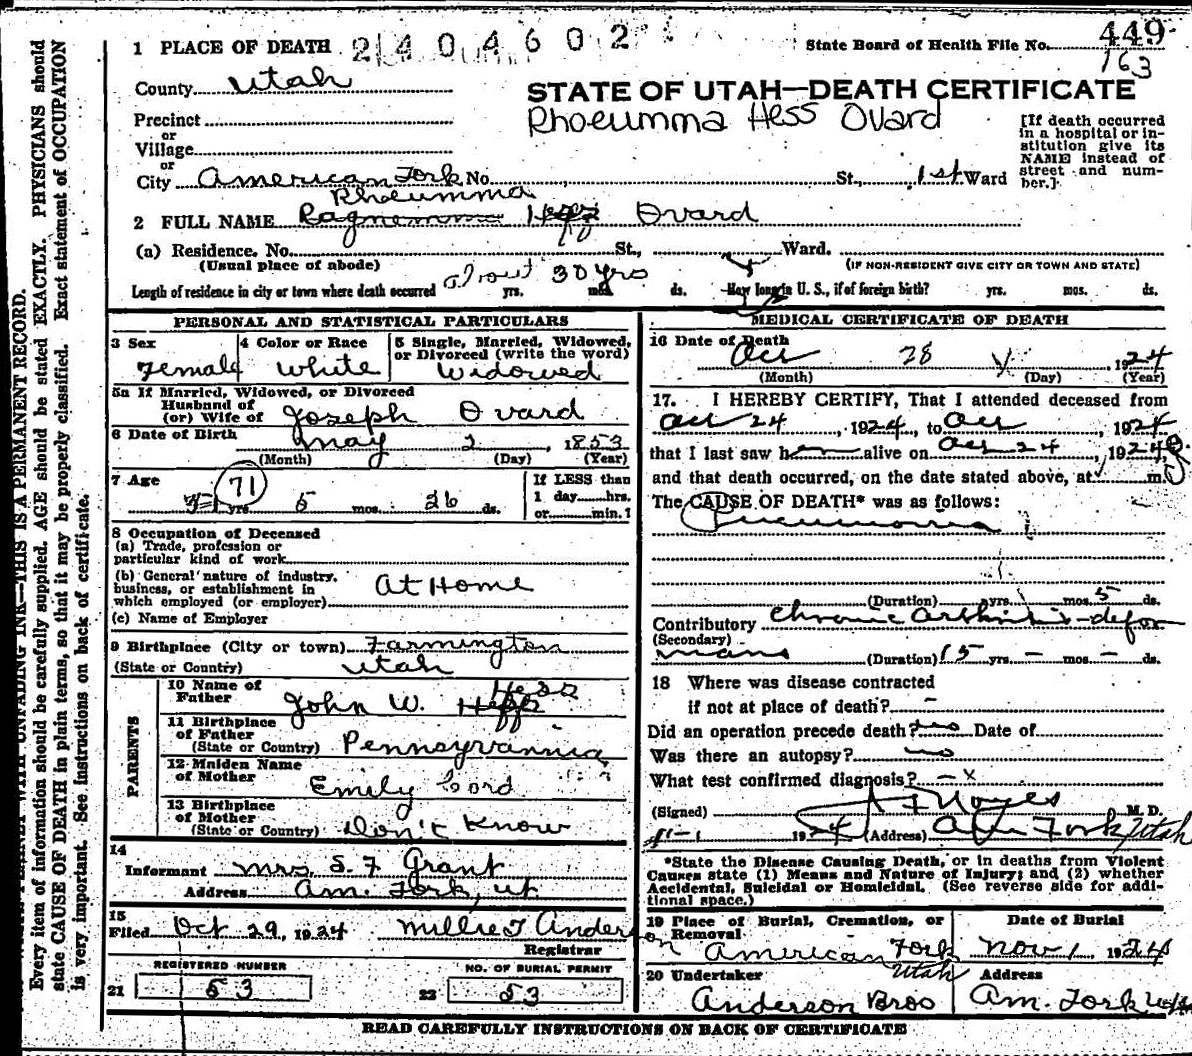 1 PLACE OF DEATH 2404602
State Board of Health File No. 449
163
County Utah
STATE OF UTAH—DEATH CERTIFICATE
Rhoeumma Hess Ovard
Precinct
or
Village
or
City American Fork No. St., 1st Ward
[If death occurred in a hospital or in-
stitution give its
NAME instead of
street and num-
ber.]
Rheumma
2 FULL NAME Ovard
(a) Residence. No. St., Ward.
(Usual place of abode)
(IF NON-RESIDENT GIVE CITY OR TOWN AND STATE)
Length of residence in city or town where death occurred about 30 yrs yrs. mos. ds. How long in U. S., if of foreign birth? yrs. mos. ds.
PERSONAL AND STATISTICAL PARTICULARS
3 Sex
Female
4 Color or Race
White
5 Single, Married, Widowed,
or Divorced (write the word)
Widowed
5a If Married, Widowed, or Divorced
Husband of
(or) Wife of Joseph Ovard
6 Date of Birth May 2, 1853
(Month) (Day) (Year)
7 Age
71 yrs. 5 mos. 26 ds.
If LESS than
1 day hrs.
or min. ?
8 Occupation of Deceased
(a) Trade, profession or
particular kind of work
(b) General nature of industry,
business, or establishment in
which employed (or employer) At Home
(c) Name of Employer
9 Birthplace (City or town) Farmington
(State or Country) Utah
PARENTS
10 Name of
Father John W. Hess
11 Birthplace
of Father
(State or Country) Pennsyvannia
12 Maiden Name
of Mother Emily Cord
13 Birthplace
of Mother
(State or Country) Don't Know
14
Informant Mrs. S. F. Grant
Address Am. Fork, Ut
15
Filed Oct 29, 1924 Millie T Anderson
Registrar
REGISTERED NUMBER
21 53
NO. OF BURIAL PERMIT
22 53
MEDICAL CERTIFICATE OF DEATH
16 Date of Death
Oct 28, 1924
(Month) (Day) (Year)
17. I HEREBY CERTIFY, That I attended deceased from
Oct 24, 1924, to Oct, 1924
that I last saw h alive on Oct 24, 1924
and that death occurred, on the date stated above, at m.
The CAUSE OF DEATH* was as follows:
Pneumonia
(Duration) yrs. mos. 5 ds.
Contributory Chronic Arthritis-defor
(Secondary)
mans (Duration) 15 yrs. – mos. – ds.
18 Where was disease contracted
if not at place of death? –
Did an operation precede death? no Date of
Was there an autopsy? no
What test confirmed diagnosis? – x
(Signed) Noyes M. D.
11-1 1924 (Address) Am Fork Utah
*State the Disease Causing Death, or in deaths from Violent
Causes state (1) Means and Nature of Injury; and (2) whether
Accidental, Suicidal or Homicidal. (See reverse side for addi-
tional space.)
19 Place of Burial, Cremation, or
Removal
American Fork
Utah
Date of Burial
Nov 1 1924
20 Undertaker
Anderson Bros
Address
Am. Fork Utah
READ CAREFULLY INSTRUCTIONS ON BACK OF CERTIFICATE
WITH UNFADING INK—THIS IS A PERMANENT RECORD.
Every item of information should be carefully supplied. AGE should be stated EXACTLY. PHYSICIANS should
state CAUSE OF DEATH in plain terms, so that it may be properly classified. Exact statement of OCCUPATION
is very important. See instructions on back of certificate.